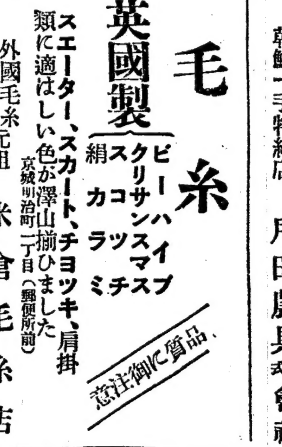 毛糸
英國製
ビーハイブ
クリサンスマス
スコツチ
絹カラミ
品質に御注意
スエーター、スカート、チヨツキ、肩掛
類に適はしい色が澤山揃ひました
京城明治町一丁目(郵便所前)
外國毛糸元祖 米倉毛糸店